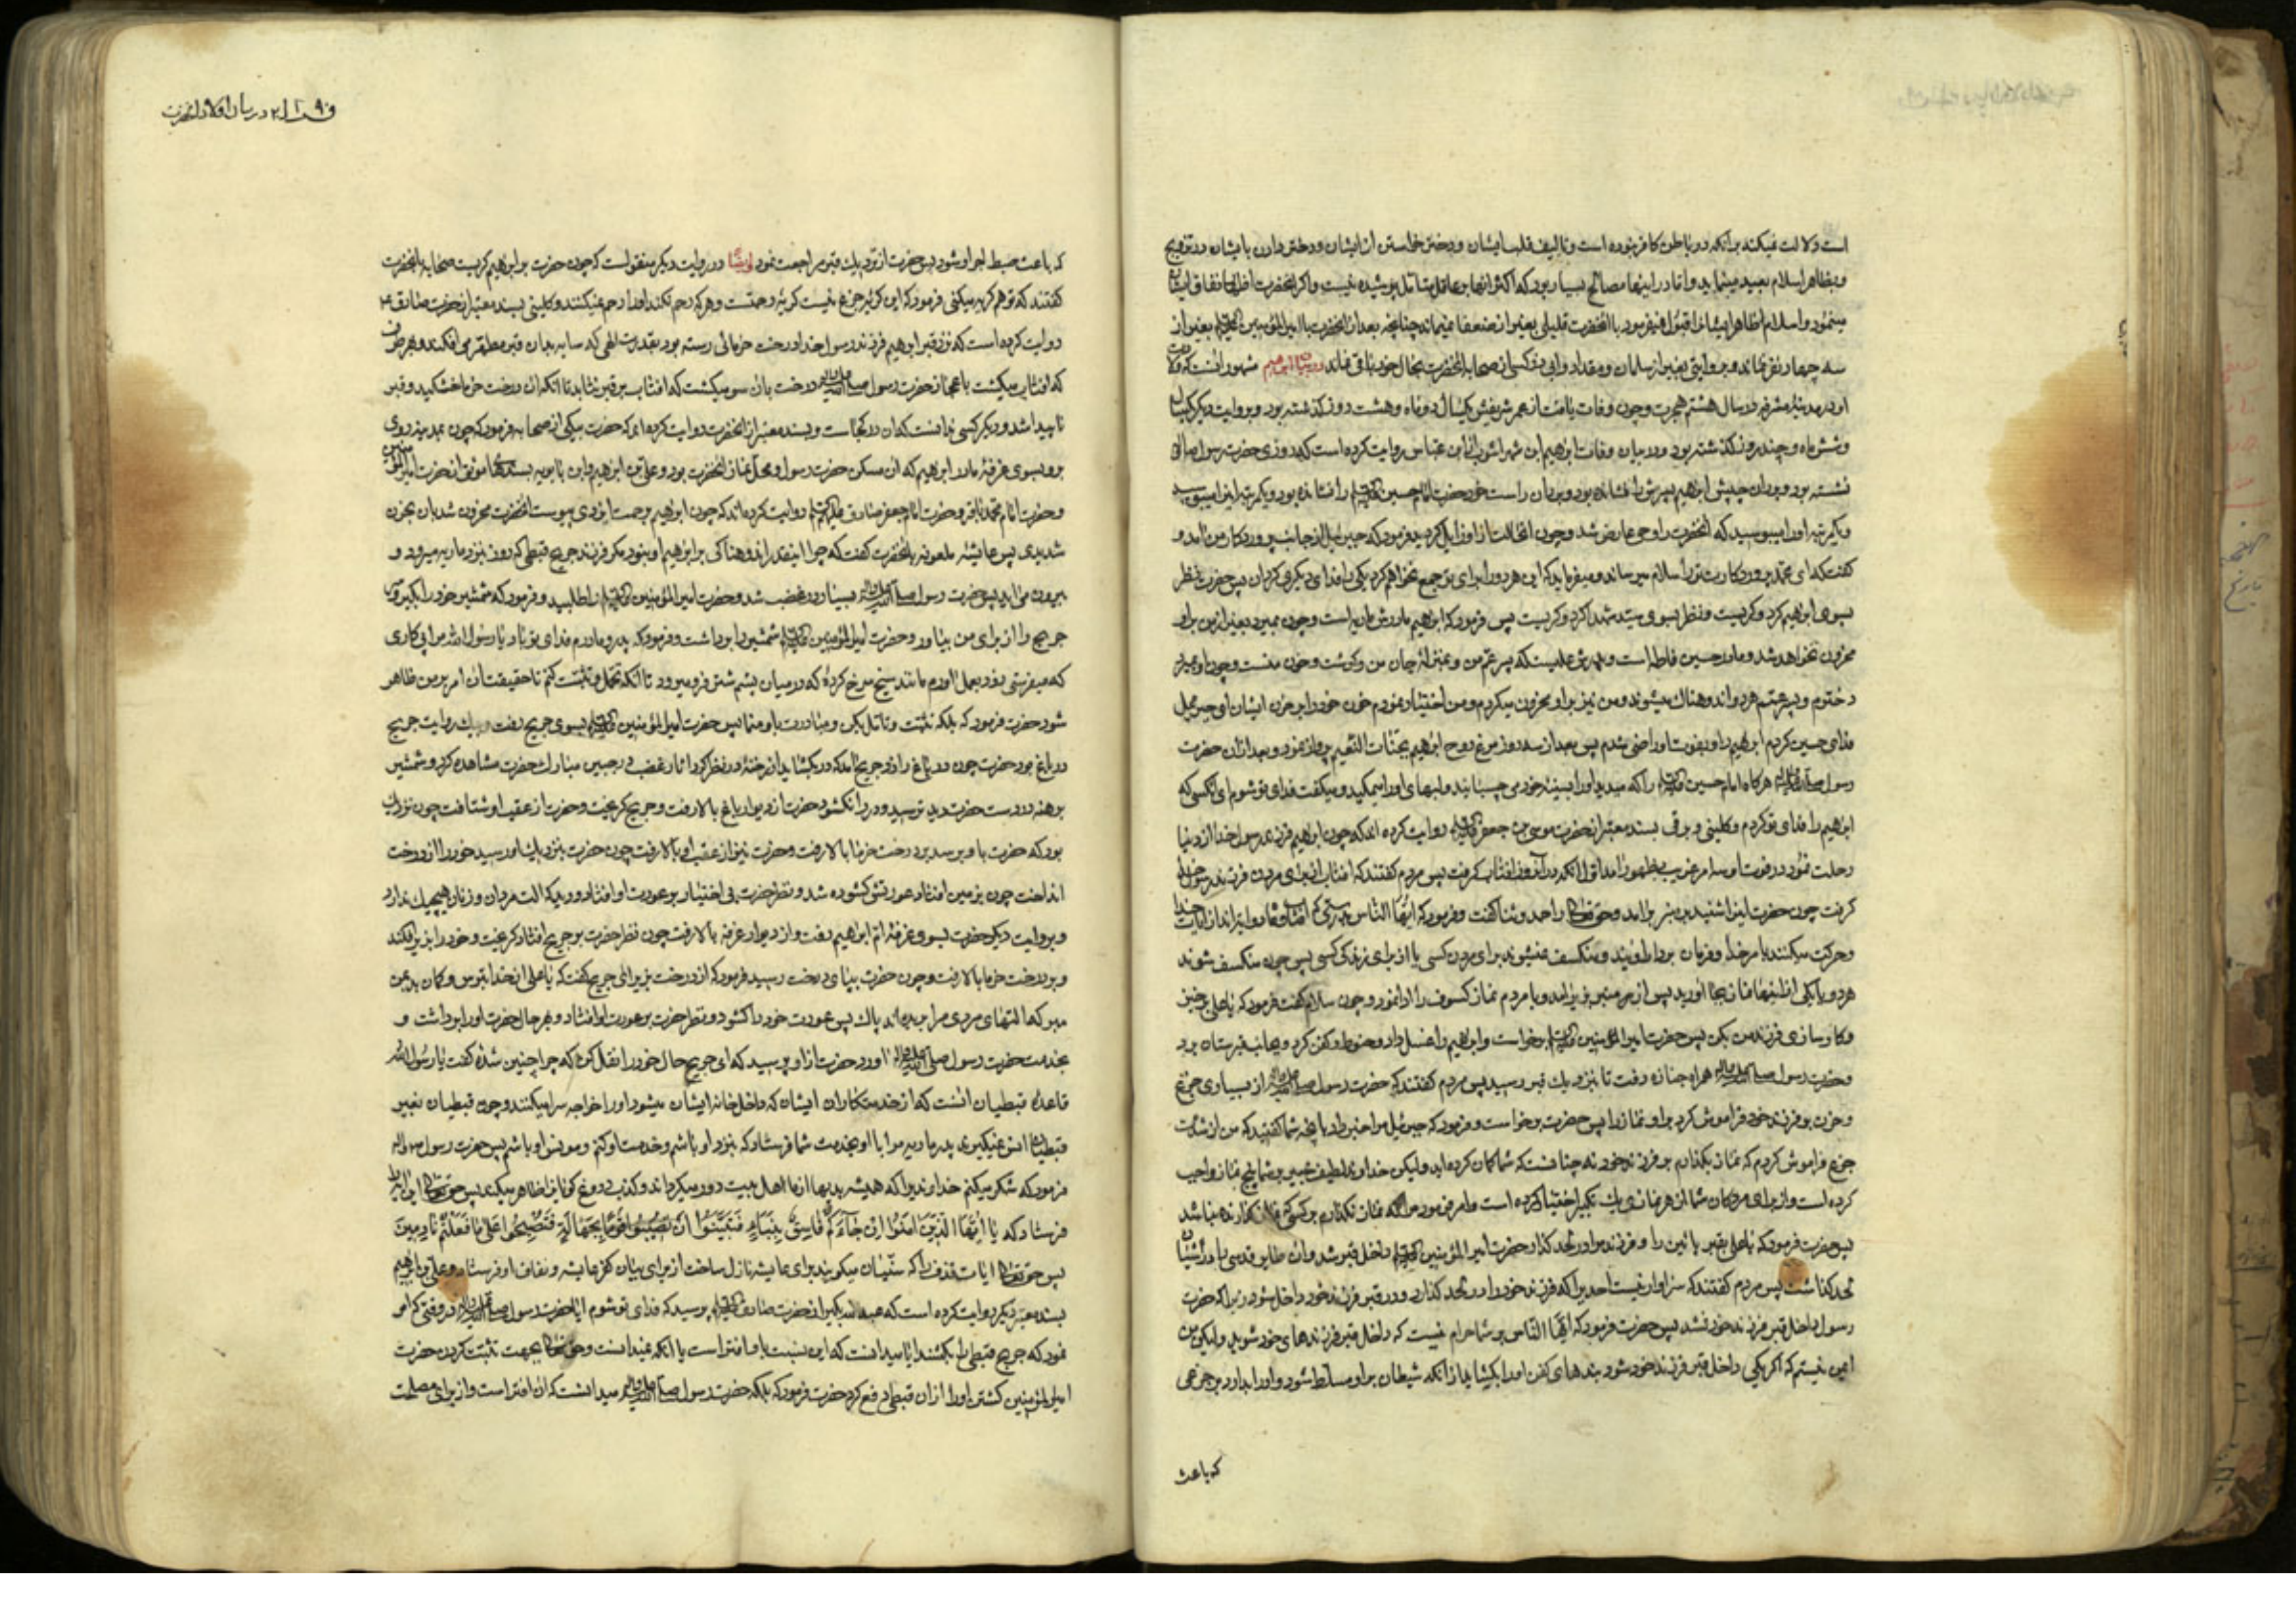 است دلالت نمیکند بر آنکه در باطن کافر نبوده است و تالیف قلب ایشان و دختر خواستن از ایشان و دختر دادن بایشان در ترویج
مینمود و اسلام ظاهر ایشانرا قبول نمیفرمود با آنحضرت قلیلی بغیر از ضعفا نمیماند چنانچه بعد از آنحضرت با امیر المؤمنین بغیر از
سه چهار نفر نماند و بروایتی بغیر از سلمان و مقداد و ابی ذر کسی از صحابه آنحضرت بحال خود باقی نماند در بیان ابراهیم مشهور آنست که ولادت
او در مدینه مشرفه در سال هشتم هجرت و چون وفات یافت از عمر شریفش یکسال و دو ماه و هشت روز گذشته بود و بروایت دیگر یکسال
و شش ماه و چند روز گذشته بود و در بیان وفات ابراهیم ابن شهر اشوب از ابن عباس روایت کرده است که روزی حضرت رسول ص
نشسته بود و بر ران چپش ابراهیم پسرش را نشانده بود و بر ران راست خود حضرت امام حسین را نشانده بود و یکمرتبه این را میبوسید
و یکمرتبه او را میبوسید که آنحضرت را وحی عارض شد و چون آنحالت از او زایل گردید فرمود که جبرئیل از جانب پروردگار من آمد و
گفت که ای محمد پروردگارت ترا سلام میرساند و میفرماید که این هر دو را برای تو جمع نخواهم کرد یکی را فدای دیگری گردان پس حضرت نظر
بسوی ابراهیم کرد و گریست و نظر بسوی سید شهدا کرد و گریست پس فرمود که ابراهیم مادرش ماریه است و چون بمیرد بغیر از من بر او
محزون نخواهد شد و مادر حسین فاطمه است و پدرش علیست که پسر عم من و بمنزله جان من و گوشت و خون منست و چون او بمیرد
دخترم و پسر عمم هر دو اندوهناک میشوند و من نیز بر او محزون میگردم و من اختیار نمودم حزن خود را بر حزن ایشان ای جبرئیل
فدای حسین کردم ابراهیم را و بفوت او راضی شدم پس بعد از سه روز مرغ روح ابراهیم بجنات النعیم پرواز نمود و بعد از آن حضرت
رسول هرگاه امام حسین را که میدید او را بسینه خود می چسبانید و لبهای او را میمکید و میگفت فدای تو شوم ای کسی که
ابراهیم را فدای تو کردم و کلینی و برقی بسند معتبر از حضرت موسی بن جعفر روایت کرده اند که چون ابراهیم فرزند رسول خدا از دنیا
رحلت نمود در فوت او سه امر غریب بظهور آمد اول آنکه در آنروز آفتاب گرفت پس مردم گفتند که آفتاب از برای مردن فرزند رسول خدا
گرفت چون حضرت این را شنید بر منبر بر آمد و حق تعالی را حمد و ثنا گفت و فرمود که ایها الناس بدرستی که آفتاب و ماه دو آیتند از آیات خدا
و حرکت میکنند بامر خدا و فرمان بردار اویند و منکسف نمیشوند برای مردن کسی یا از برای زندگی کسی پس چون منکسف شوند
هر دو یا یکی از اینها نماز بجا آورید پس از منبر بزیر آمد و با مردم نماز کسوف را ادا نمود و چون سلام گفت فرمود که یا علی برخیز
و کار سازی فرزند من بکن پس حضرت امیر المؤمنین برخاست و ابراهیم را غسل داد و حنوط و کفن کرد و بجانب قبرستان برد
و حضرت رسول همراه جنازه رفت تا بنزدیک قبر رسید پس مردم گفتند که حضرت رسول از بسیاری جزع
و حزن بر فرزند خود فراموش کرد بر او نماز را پس حضرت برخواست و فرمود که جبرئیل مرا خبر داد بانچه شما گفتید که من از شدت
جزع فراموش کردم که نماز بگذارم بر فرزند خود نه چنانست که شما گمان کرده اید ولیکن خداوند لطیف خبیر بر شما پنج نماز واجب
کرده است و از برای مردگان شما از هر نمازی یک تکبیر اختیار کرده است و امر فرمود مرا که نماز نگذارم بر کسی که نماز نکرده باشد
پس حضرت فرمود که یا علی بقبر پائین رو و فرزند مرا در لحد گذار حضرت امیر المؤمنین داخل قبر شد و آن طایر قدسی را در آشیان
لحد گذاشت پس مردم گفتند که سزاوار نیست احدیرا که فرزند خود را در لحد گذارد و در قبر فرزند خود داخل شود زیرا که حضرت
رسول داخل قبر فرزند خود نشد پس حضرت فرمود که ایها الناس بر شما حرام نیست که داخل قبر فرزندهای خود شوید ولیکن من
ایمن نیستم که اگر یکی داخل قبر فرزند خود شود بندهای کفن او را بگشاید از آنکه شیطان بر او مسلط شود و او را بدارد بر جزعی
که باعث
در بیان اولاد آنحضرت
که باعث حبط اجر او شود پس حضرت از نزدیک قبر مراجعت نمود ایضا در روایت دیگر منقولست که چون حضرت بر ابراهیم گریست صحابه بآنحضرت
گفتند که تو هم گریه میکنی فرمود که این گریه جزع نیست گریه رحمتست و هر که رحم نکند او را رحم نمیکنند و کلینی بسند معتبر از حضرت صادق ع
روایت کرده است که نزد قبر ابراهیم فرزند رسول خدا درخت خرمائی رسته بود بقدرت الهی که سایه بان قبر مطهر می افکند و بهر طرف
که آفتاب میگشت باعجاز حضرت رسول درخت بان سو میگشت که آفتاب بر قبر نتابد تا آنکه آن درخت خرما خشکید و قبر
ناپیدا شد و دیگر کسی ندانست که آن در کجاست و بسند معتبر از آنحضرت روایت کرده اند که حضرت بیکی از صحابه فرمود که چون بمدینه روی
برو بسوی غرفه مادر ابراهیم که آن مسکن حضرت رسول و محل نماز آنحضرت بود و علی بن ابراهیم و ابن بابویه بسندهای موثق از حضرت امیر المؤمنین
و حضرت امام محمد باقر و حضرت امام جعفر صادق روایت کرده اند که چون ابراهیم برحمت ایزدی پیوست آنحضرت محزون شد بان بحزن
شدیدی پس عایشه ملعونه بآنحضرت گفت که چرا اینقدر اندوهناکی بر ابراهیم او نبود مگر فرزند جریح قبطی که هر روز بنزد ماریه میرود و
بیرون می آید پس حضرت رسول بسیار در غضب شد و حضرت امیر المؤمنین را طلبید و فرمود که شمشیر خود را بگیر و سر
جریح را از برای من بیاور و حضرت امیر المؤمنین شمشیر را برداشت و فرمود که پدر و مادرم فدای تو باد یا رسول الله مرا پی کاری
که میفرستی بزود بعمل آورم مانند سیخ سرخ کرده که در میان پشم شتر فرو میرود تا آنکه تحمل و تثبت کنم تا حقیقت آن امر بر من ظاهر
شود حضرت فرمود که بلکه تثبت و تأمل بکن و مبادرت باو منما پس حضرت امیر المؤمنین بسوی جریح رفت و بیک روایت جریح
در باغ بود حضرت چون در باغ را زد جریح آمد که در بگشاید از رخنه در نظر کرد آثار غضب در جبین مبارک حضرت مشاهده کرد و شمشیر
برهنه در دست حضرت دید ترسید و در را نگشود حضرت از دیوار باغ بالا رفت و جریح گریخت و حضرت از عقب او شتافت چون نزدیک
بود که حضرت باو برسد بر درخت خرما بالا رفت و حضرت نیز از عقب او بالا رفت چون حضرت بنزدیک او رسید خود را از درخت
انداخت چون بزمین افتاد عورتش گشوده شد و نظر حضرت بی اختیار بر عورت او افتاد و دید که آلت مردان و زنان هیچیک ندارد
و بروایت دیگر حضرت بسوی غرفه ام ابراهیم رفت و از دیوار غرفه بالا رفت چون نظر حضرت بر جریح افتاد گریخت و خود را بزیر افکند
و بر درخت خرما بالا رفت و چون حضرت بپای درخت رسید فرمود که از درخت بزیر آی جریح گفت که یا علی از خدا بترس و گمان بد بمن
مبر که آلتهای مردی مرا بریده اند پاک پس عورت خود را گشود و نظر حضرت بر عورت او افتاد و بهر حال حضرت او را برداشت و
بخدمت حضرت رسول آورد حضرت از او پرسید که ای جریح حال خود را نقل کن که چرا چنین شده گفت یا رسول الله
قاعده قبطیان آنست که از خدمتکاران ایشان که داخل خانه ایشان میشود او را خواجه سرا میکنند و چون قبطیان بغیر
قبطیان انس نمیگیرند پدر ماریه مرا با او بخدمت شما فرستاد که بنزد او باشم و خدمت او کنم و مونس او باشم پس حضرت رسول
فرمود که شکر میکنم خداوندیرا که همیشه بدیها از ما اهل بیت دور میگرداند و کذب دروغ گویان را ظاهر میکند پس حق تعالی این آیه را
فرستاد که یَا أَیُّهَا الَّذِینَ آمَنُوا إِنْ جَاءَکُمْ فَاسِقٌ بِنَبَإٍ فَتَبَیَّنُوا أَنْ تُصِیبُوا قَوْمًا بِجَهَالَةٍ فَتُصْبِحُوا عَلَى مَا فَعَلْتُمْ نَادِمِینَ
پس حق تعالی آیات قذف را که سنیان میگویند برای عایشه نازل ساخت از برای بیان کفر عایشه و نفاق او فرستاد و علی بن ابراهیم
بسند معتبر دیگر روایت کرده است که عبد الله بکیر از حضرت صادق پرسید که فدای تو شوم ایا حضرت رسول در وقتی که امر
نمود که جریح قبطی را بکشند ایا میدانست که این نسبت باو افتراست یا آنکه نمیدانست و حق تعالی بجهت تثبت کردن حضرت
امیر المؤمنین کشتن او را از آن قبطی دفع کرد حضرت فرمود که بلکه حضرت رسول میدانست که آن افتراست و از برای مصلحت